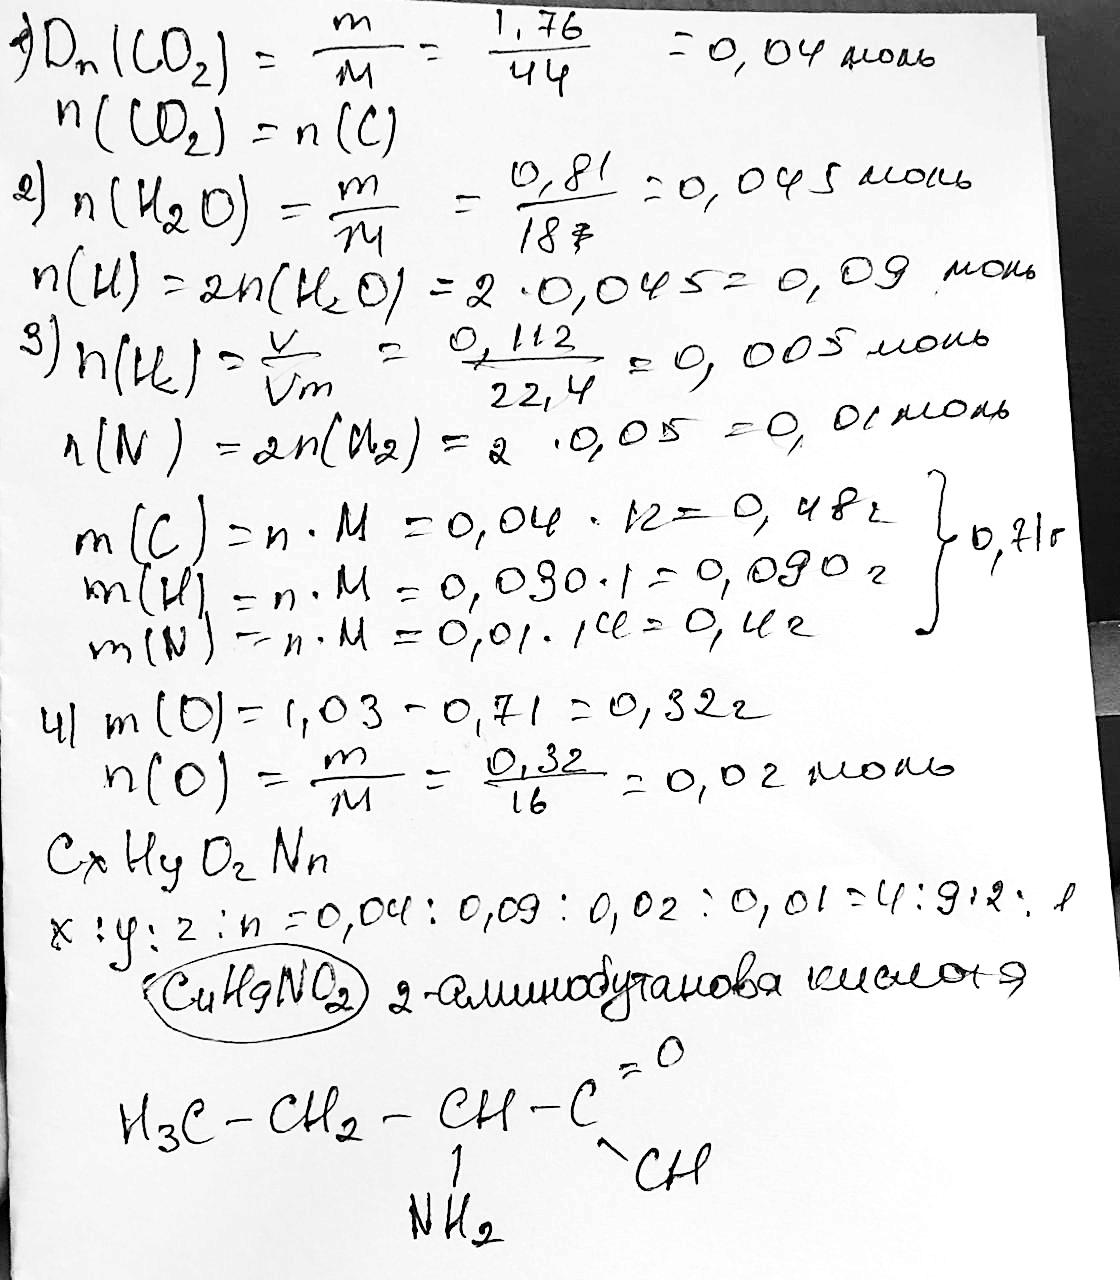 1) Dn(CO2) = m/M = 1,76/44 = 0,04 моль
n(CO2) = n(C)
2) n(H2O) = m/M = 0,81/18 = 0,045 моль
n(H) = 2n(H2O) = 2 · 0,045 = 0,09 моль
3) n(N2) = V/Vm = 0,112/22,4 = 0,005 моль
n(N) = 2n(N2) = 2 · 0,05 = 0,01 моль
m(C) = n · M = 0,04 · 12 = 0,48г
m(H) = n · M = 0,090 · 1 = 0,090г } 0,71г
m(N) = n · M = 0,01 · 14 = 0,4г
4) m(O) = 1,03 - 0,71 = 0,32г
n(O) = m/M = 0,32/16 = 0,02 моль
CxHyOzNn
x : y : z : n = 0,04 : 0,09 : 0,02 : 0,01 = 4 : 9 : 2 : 1
C4H9NO2 2-амінобутанова кислота
=O
H3C - CH2 - CH - C
| \ CH
NH2